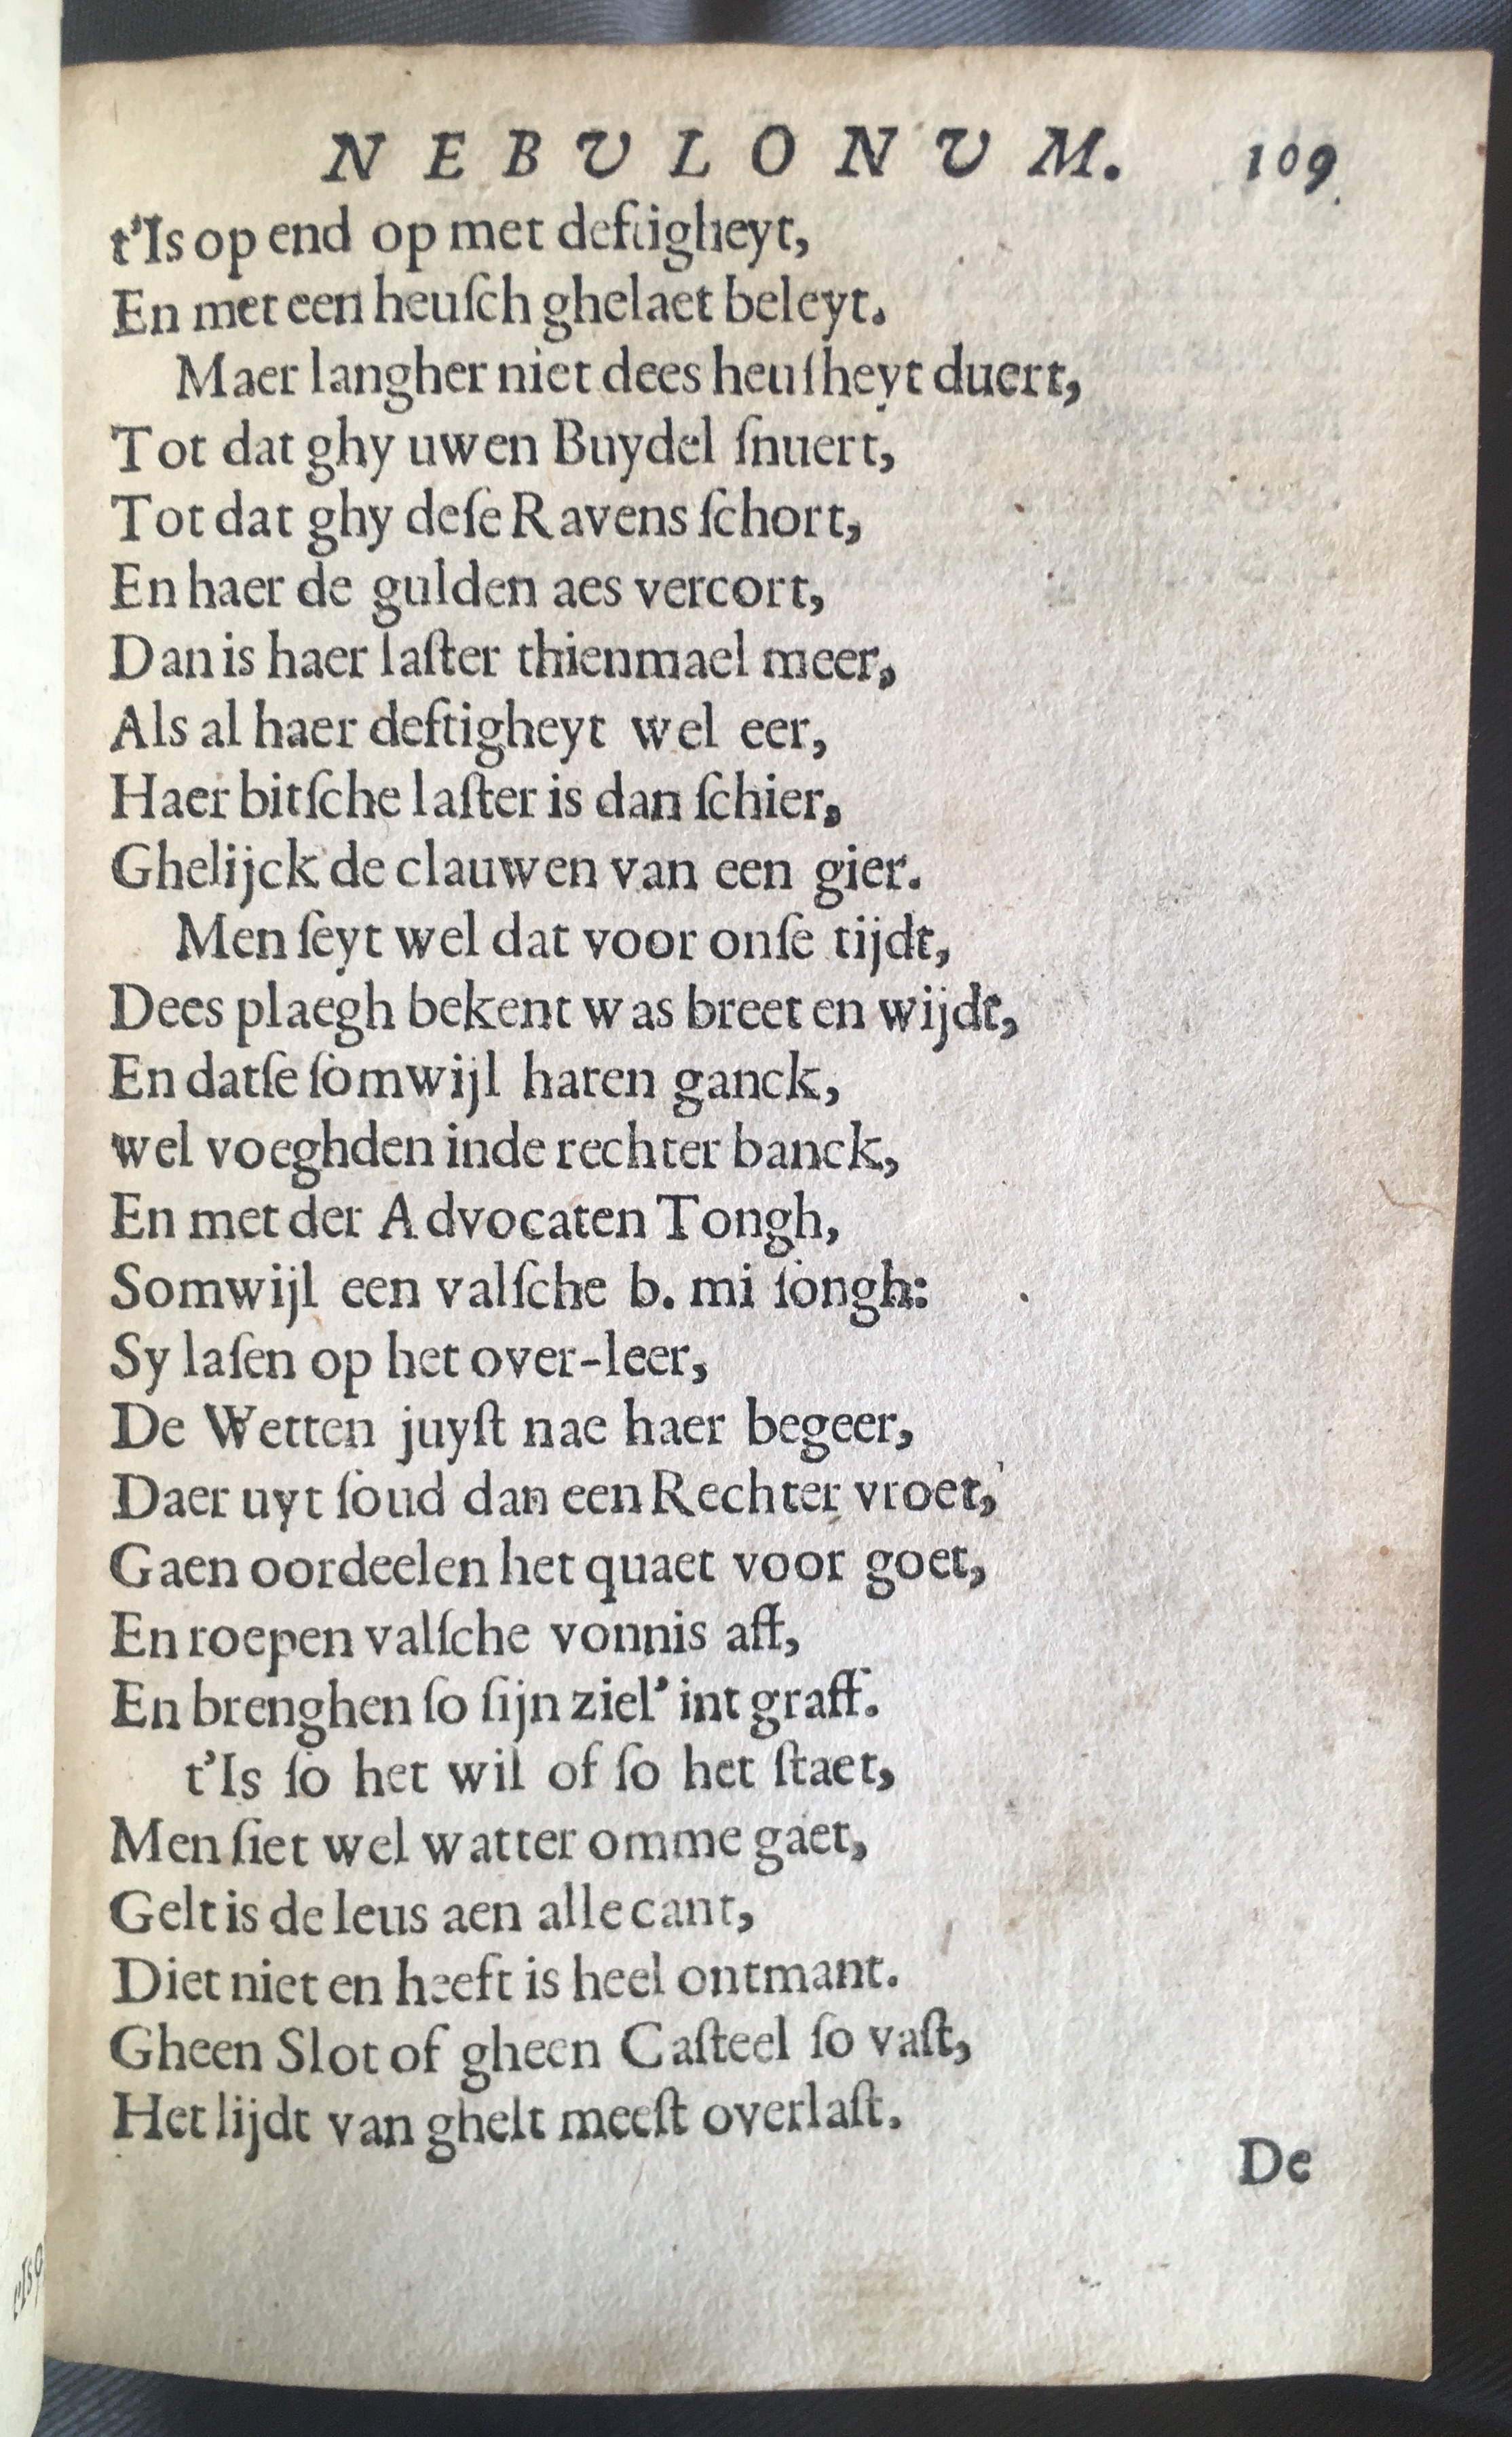 NEBVLONVM. 109
t'Is op end op met deftigheyt,
En met een heuſch ghelaet beleyt.
Maer langher niet dees heuſheyt duert,
Tot dat ghy uwen Buydel ſnuert,
Tot dat ghy deſe Ravens ſchort,
En haer de gulden aes vercort,
Dan is haer laſter thienmael meer,
Als al haer deftigheyt wel eer,
Haer bitſche laſter is dan ſchier,
Ghelijck de clauwen van een gier.
Men ſeyt wel dat voor onſe tijdt,
Dees plaegh bekent was breet en wijdt,
En datſe ſomwijl haren ganck,
wel voeghden inde rechter banck,
En met der Advocaten Tongh,
Somwijl een valſche b. mi ſongh:
Sy laſen op het over-leer,
De Wetten juyſt nae haer begeer,
Daer uyt ſoud dan een Rechter vroet,
Gaen oordeelen het quaet voor goet,
En roepen valſche vonnis aff,
En brenghen ſo ſijn ziel' int graff.
t'Is ſo het wil of ſo het ſtaet,
Men ſiet wel watter omme gaet,
Gelt is de leus aen alle cant,
Diet niet en heeft is heel ontmant.
Gheen Slot of gheen Caſteel ſo vaſt,
Het lijdt van ghelt meeſt overlaſt.
De